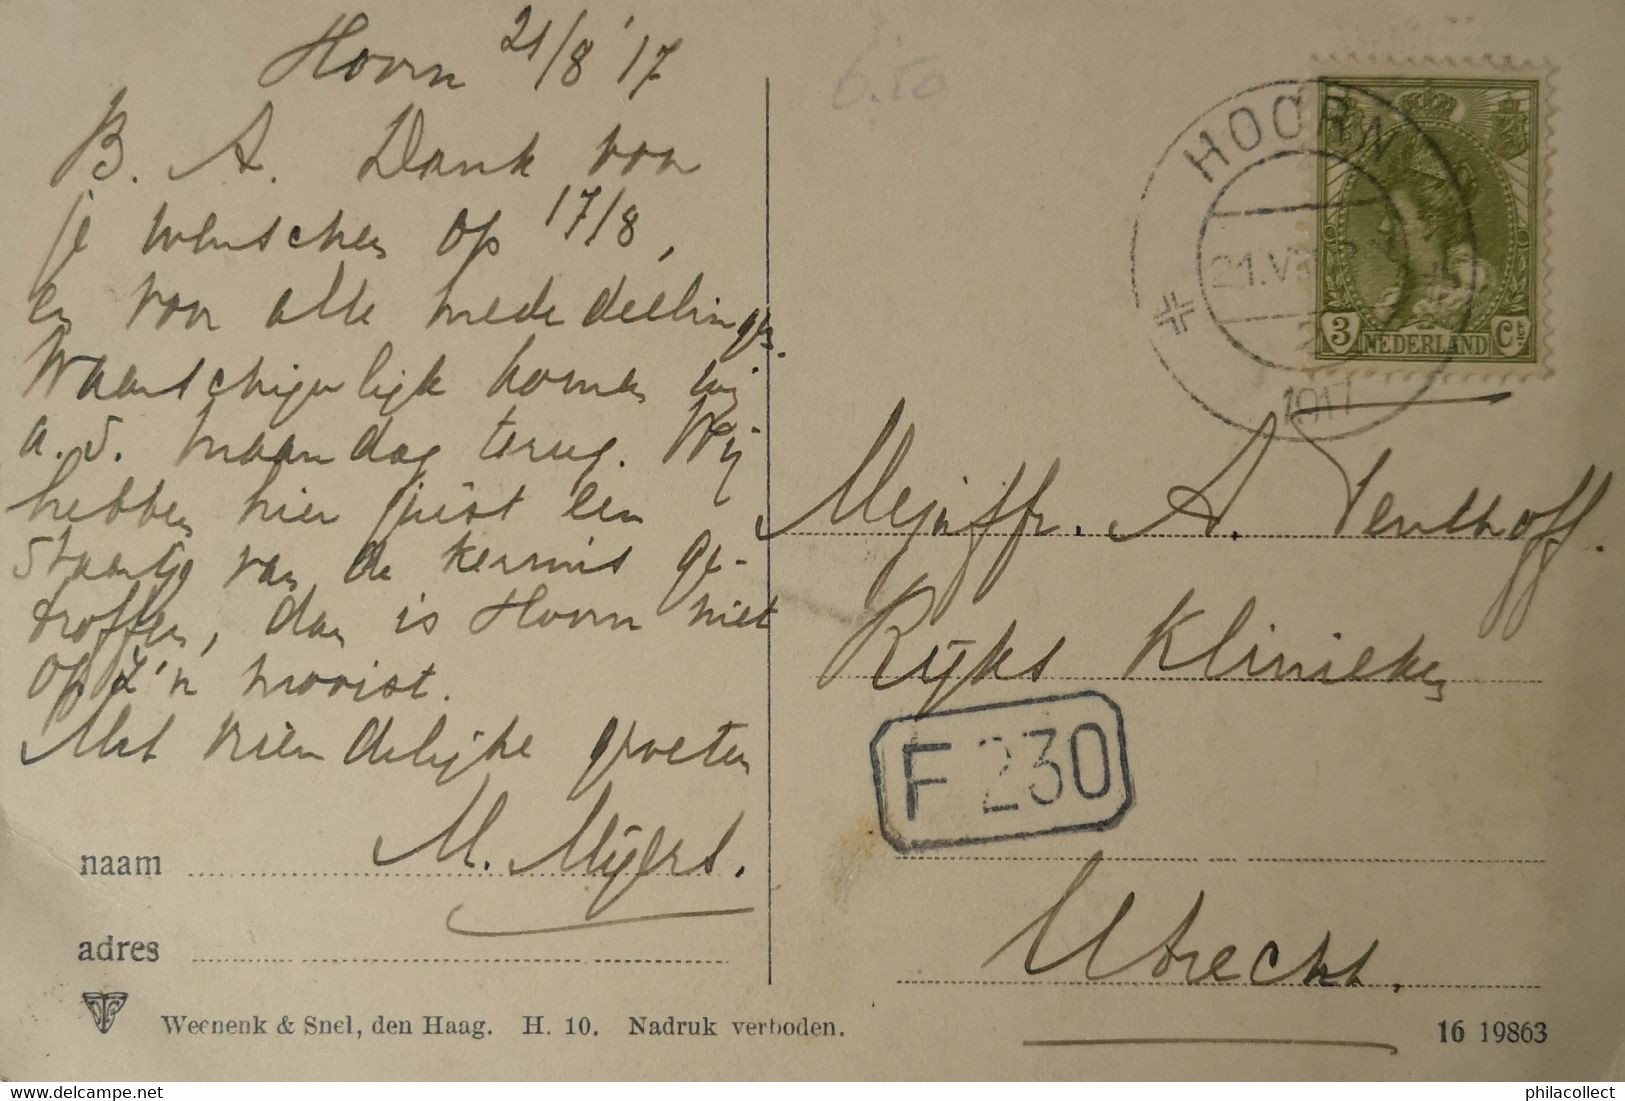 Hoorn 21/8 '17
B. A. Dank voor
je wenschen op 17/8,
en voor alle mededeelingen.
Waarschijnlijk komen wij
a.s. maandag terug. Wij
hebben hier juist een
staartje van de kermis ge-
troffen, dan is Hoorn niet
op z'n mooist.
Met vriendelijke groeten
M. Mijers.
naam
adres
Weenenk & Snel, den Haag. H. 10. Nadruk verboden.
6.50
HOORN
1917
3 NEDERLAND Ct
Mejuffr. A. Tenthoff.
Rijks Klinieken
F 230
Utrecht.
16 19863
philacollect